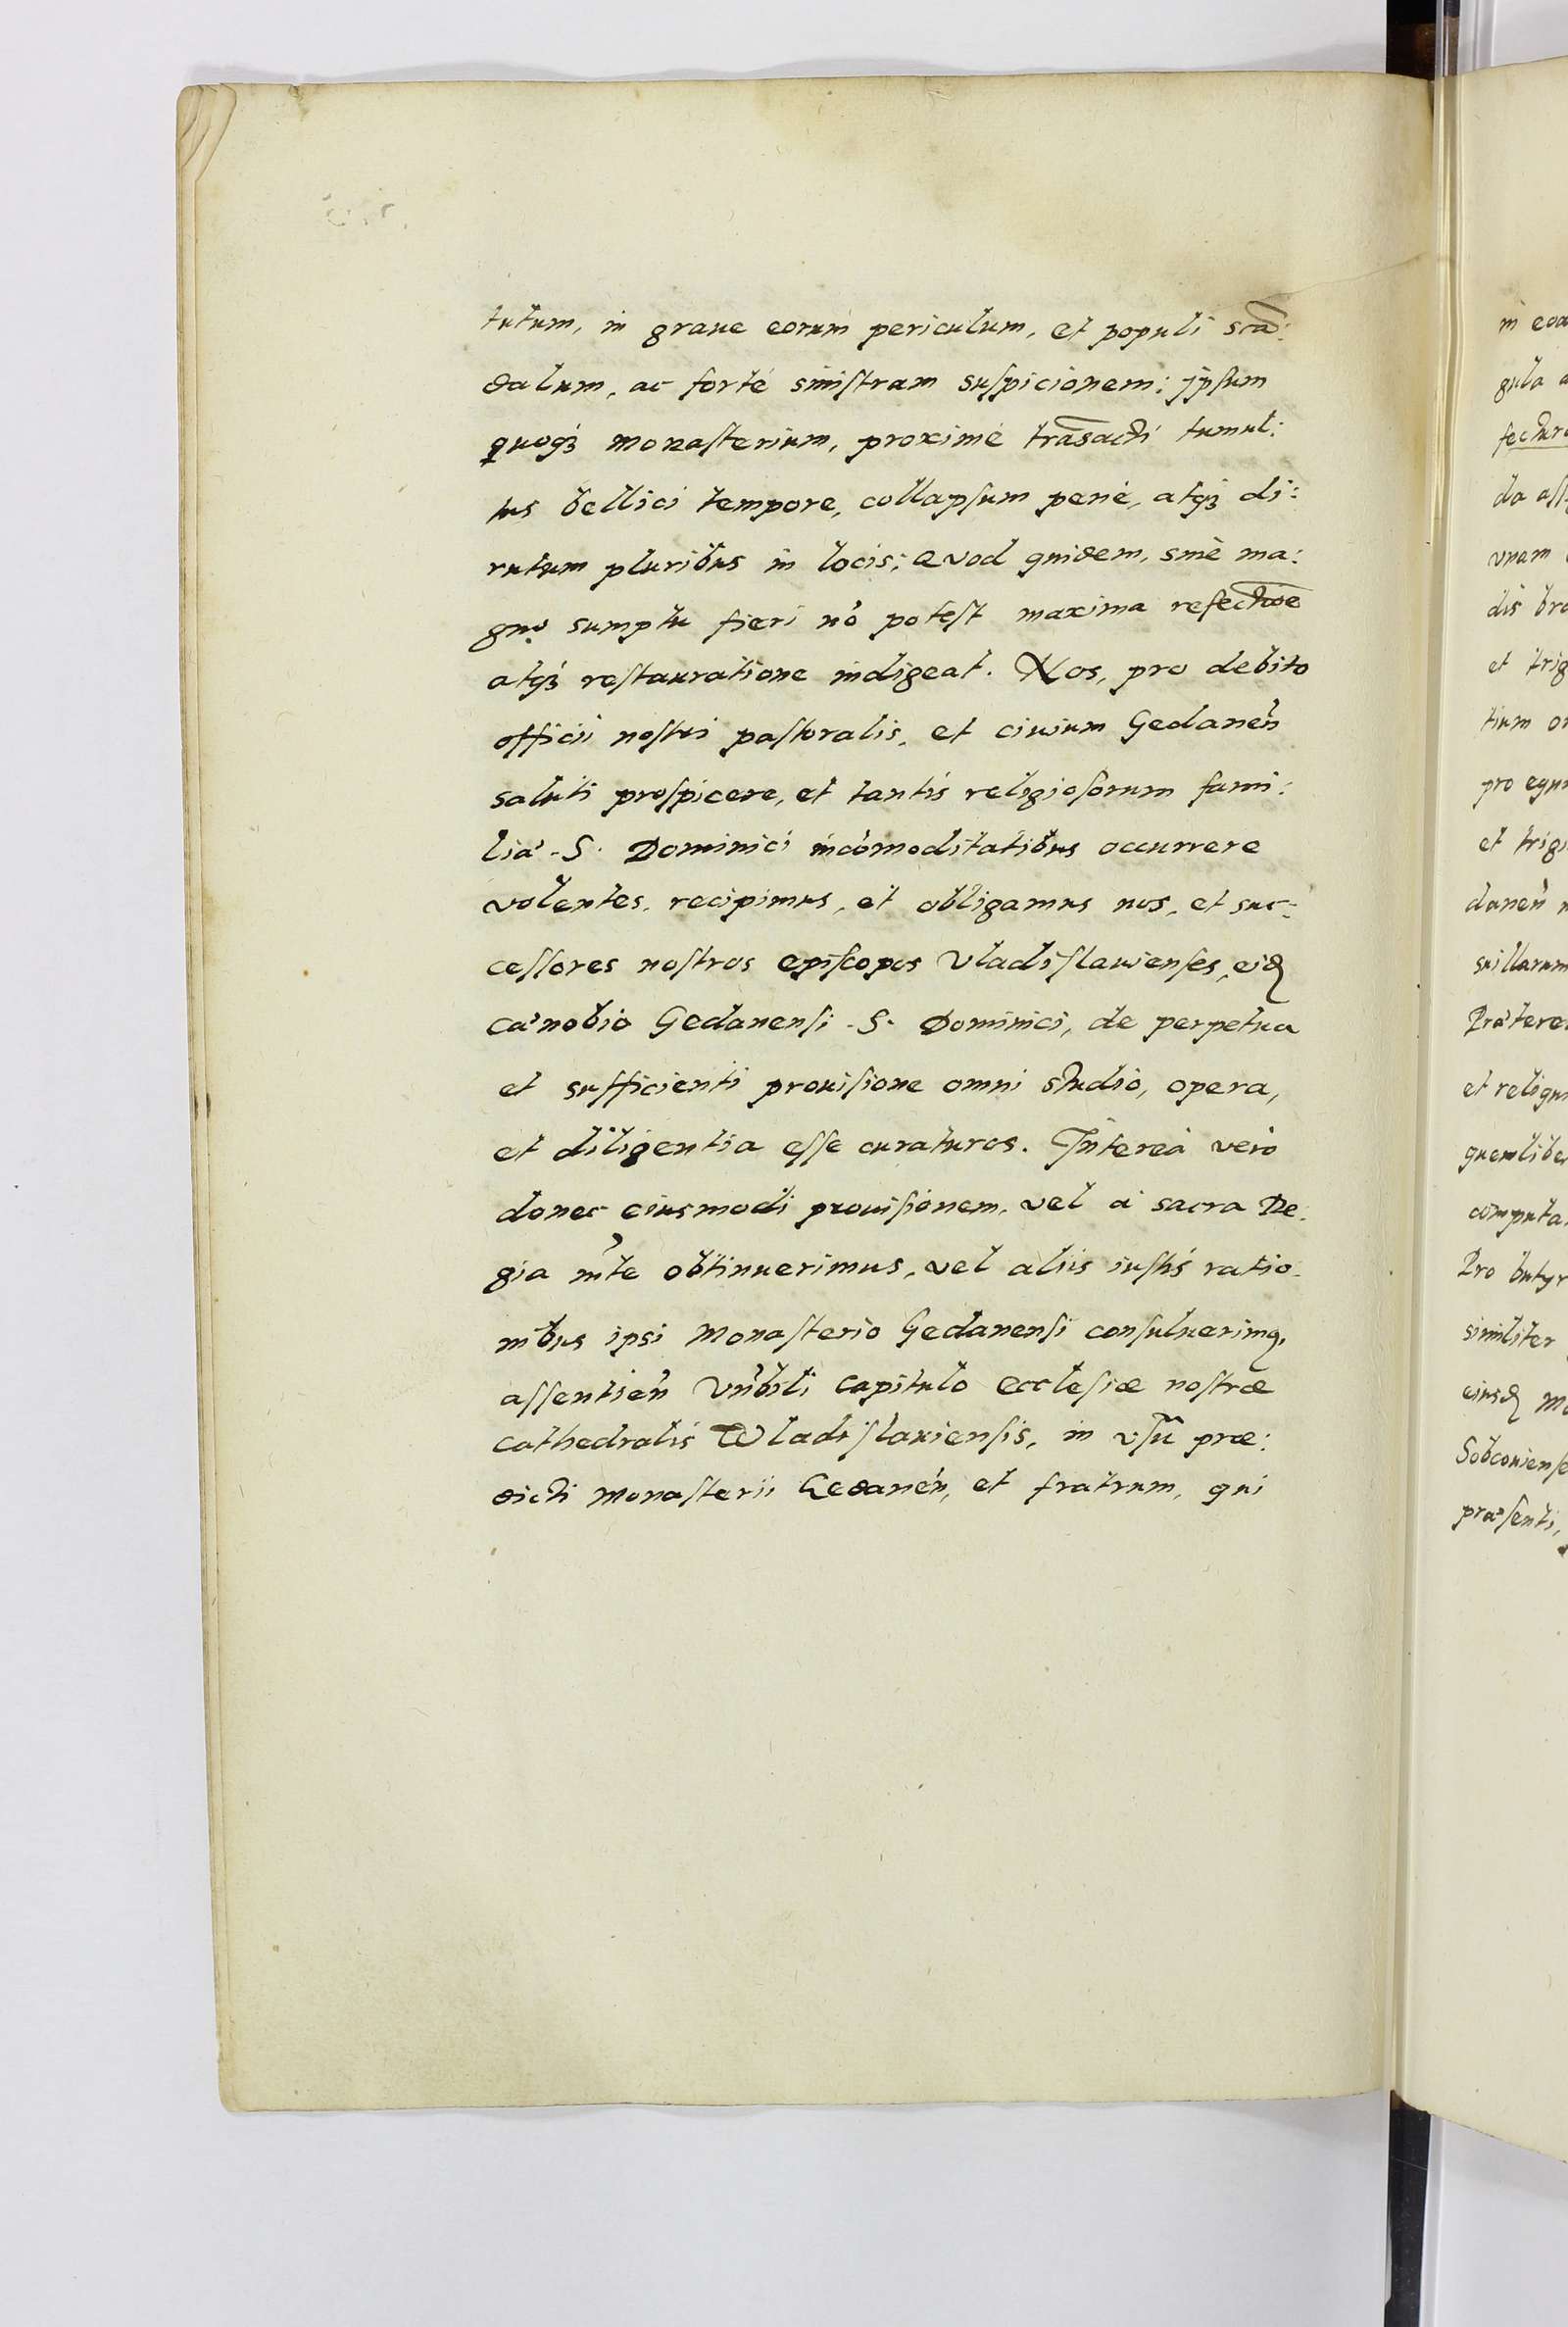 tutum, in graue eorum periculum, et populi scā:
dalum, ac fortè sinistram suspicionem: jpsum
quoqꝫ monasterium, proximè trāsacti tumul:
tus bellici tempore, collapsum penè, atqꝫ di:
rutum pluribus in locis; Quod quidem, sinè ma:
gno sumptu fieri nō potest maxima refectiōe
atqꝫ restauratione indigeat. Nos, pro debito
officii nostri pastoralis, et ciuium Gedaneń
saluti prospicere, et tantis religiosorum fami:
lia' S. Dominici incōmoditatibus occurrere
volentes, recipimus, et obligamus nos, et suc:
cessores nostros episcopos Vladislauienses, eidꝫ
ca'nobio Gedanensi S. Dominici, de perpetua
et sufficienti prouisione omni studio, opera,
et diligentia esse curaturos. Intereà verò
donec eiusmodi prouisionem, vel à sacra Re:
gia mte obtinuerimus, vel aliis iustis ratio:
nibus ipsi Monasterio Gedanensi consuluerimꝰ,
assentień Vnbili Capitulo Ecclesiæ nostræ
Cathedralis Wladislauiensis, in vsū præ:
dicti Monasterii Gedaneń, et fratrum, qui
in eoa
gula a
fectura
da ass
vnam
dis bra
et trig
tium or
pro equ
et trigi
daneń n
suillarum
Præ'terea
et reliqu
quemlibe
computa
Pro butyr
similiter
eiusdꝫ Mo
Sobcouiense
præ'senti,